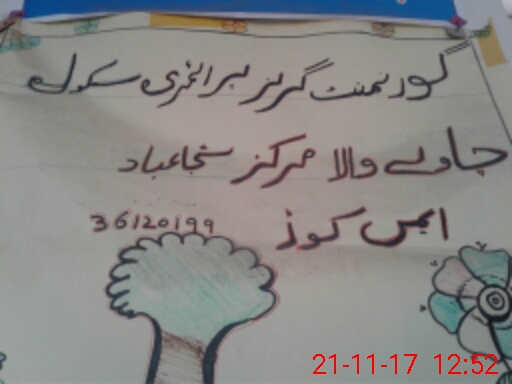 گورنمنٹ گرلز پرائمری سکول
جاولے والا مرکز شجاعباد
ایمس کوڈ 36120199
21-11-17 12:52